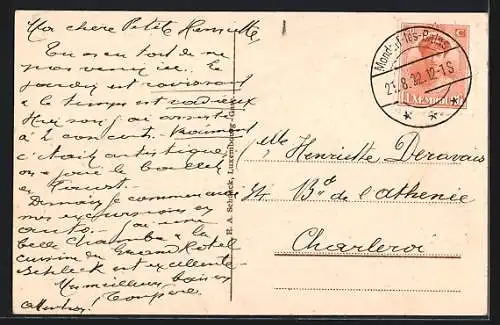 Ma chère Petite Henriette
Tu as eu tort de ne
pas venir ici. le
jardin est ravissant
& le temps est radieux
Hier soir j'ai assisté
à 1 concert. Vraiment
c'était artistique,
on a joué le ballet
de Faust.
Demain je commence
mes excursions en
auto. J'ai une
belle Chambre & la
cuisine du Grand Hotel
Schleck est excellente
Un meilleur baiser
Ton père
E. A. Schaack, Luxembourg-Gare
Mondorf-les-Bains
21.8.22.12-1 S
LUXEMBOURG
Mlle Henriette Deravais
34 Bd de l'athénée
Charleroi